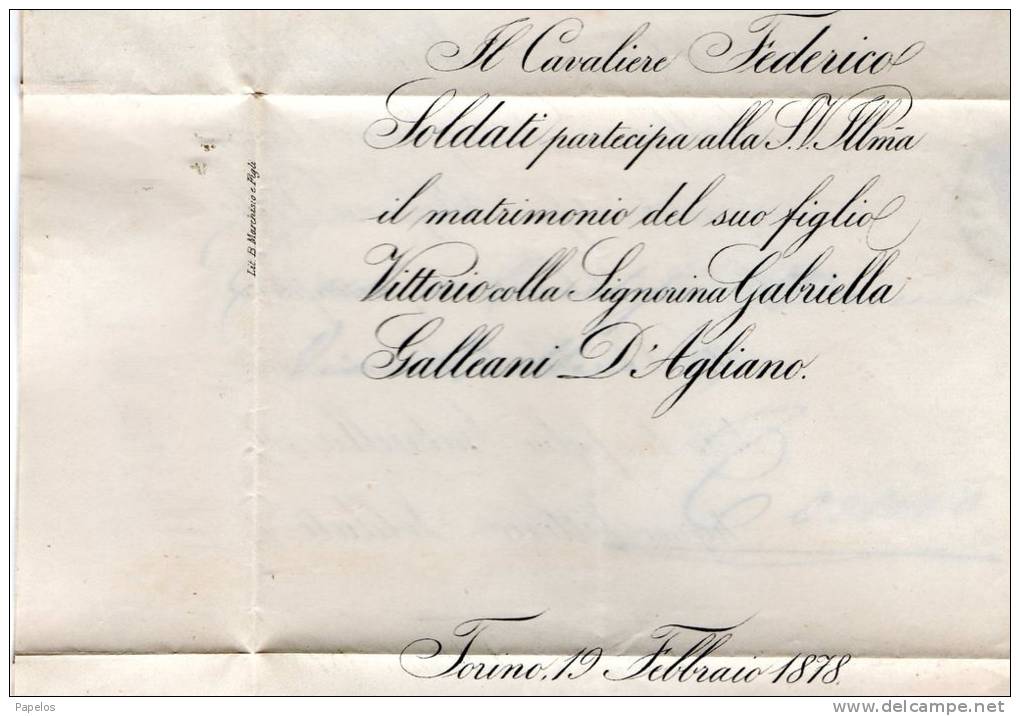 Il Cavaliere Federico
Soldati partecipa alla S.V. Illma
il matrimonio del suo figlio
Vittorio colla Signorina Gabriella
Galleani D'Agliano.
Torino, 19 Febbraio 1878.
Lit. B. Marchisio e Figli
Papelos
www.delcampe.net